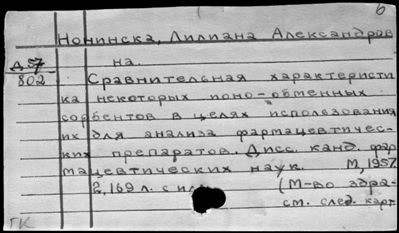 б
Нонинска, Лилиана Александров
на.
Д 57
802
Сравнительная характеристи
ка некоторых ионо-обменных
сорбентов в целях использования
их для анализа фармацевтичес-
ких препаратов. Дисс. канд. фар
мацевтических наук. М, 1957.
2, 169 л. с ил
(М-во здра-
см. след. карт
ГК